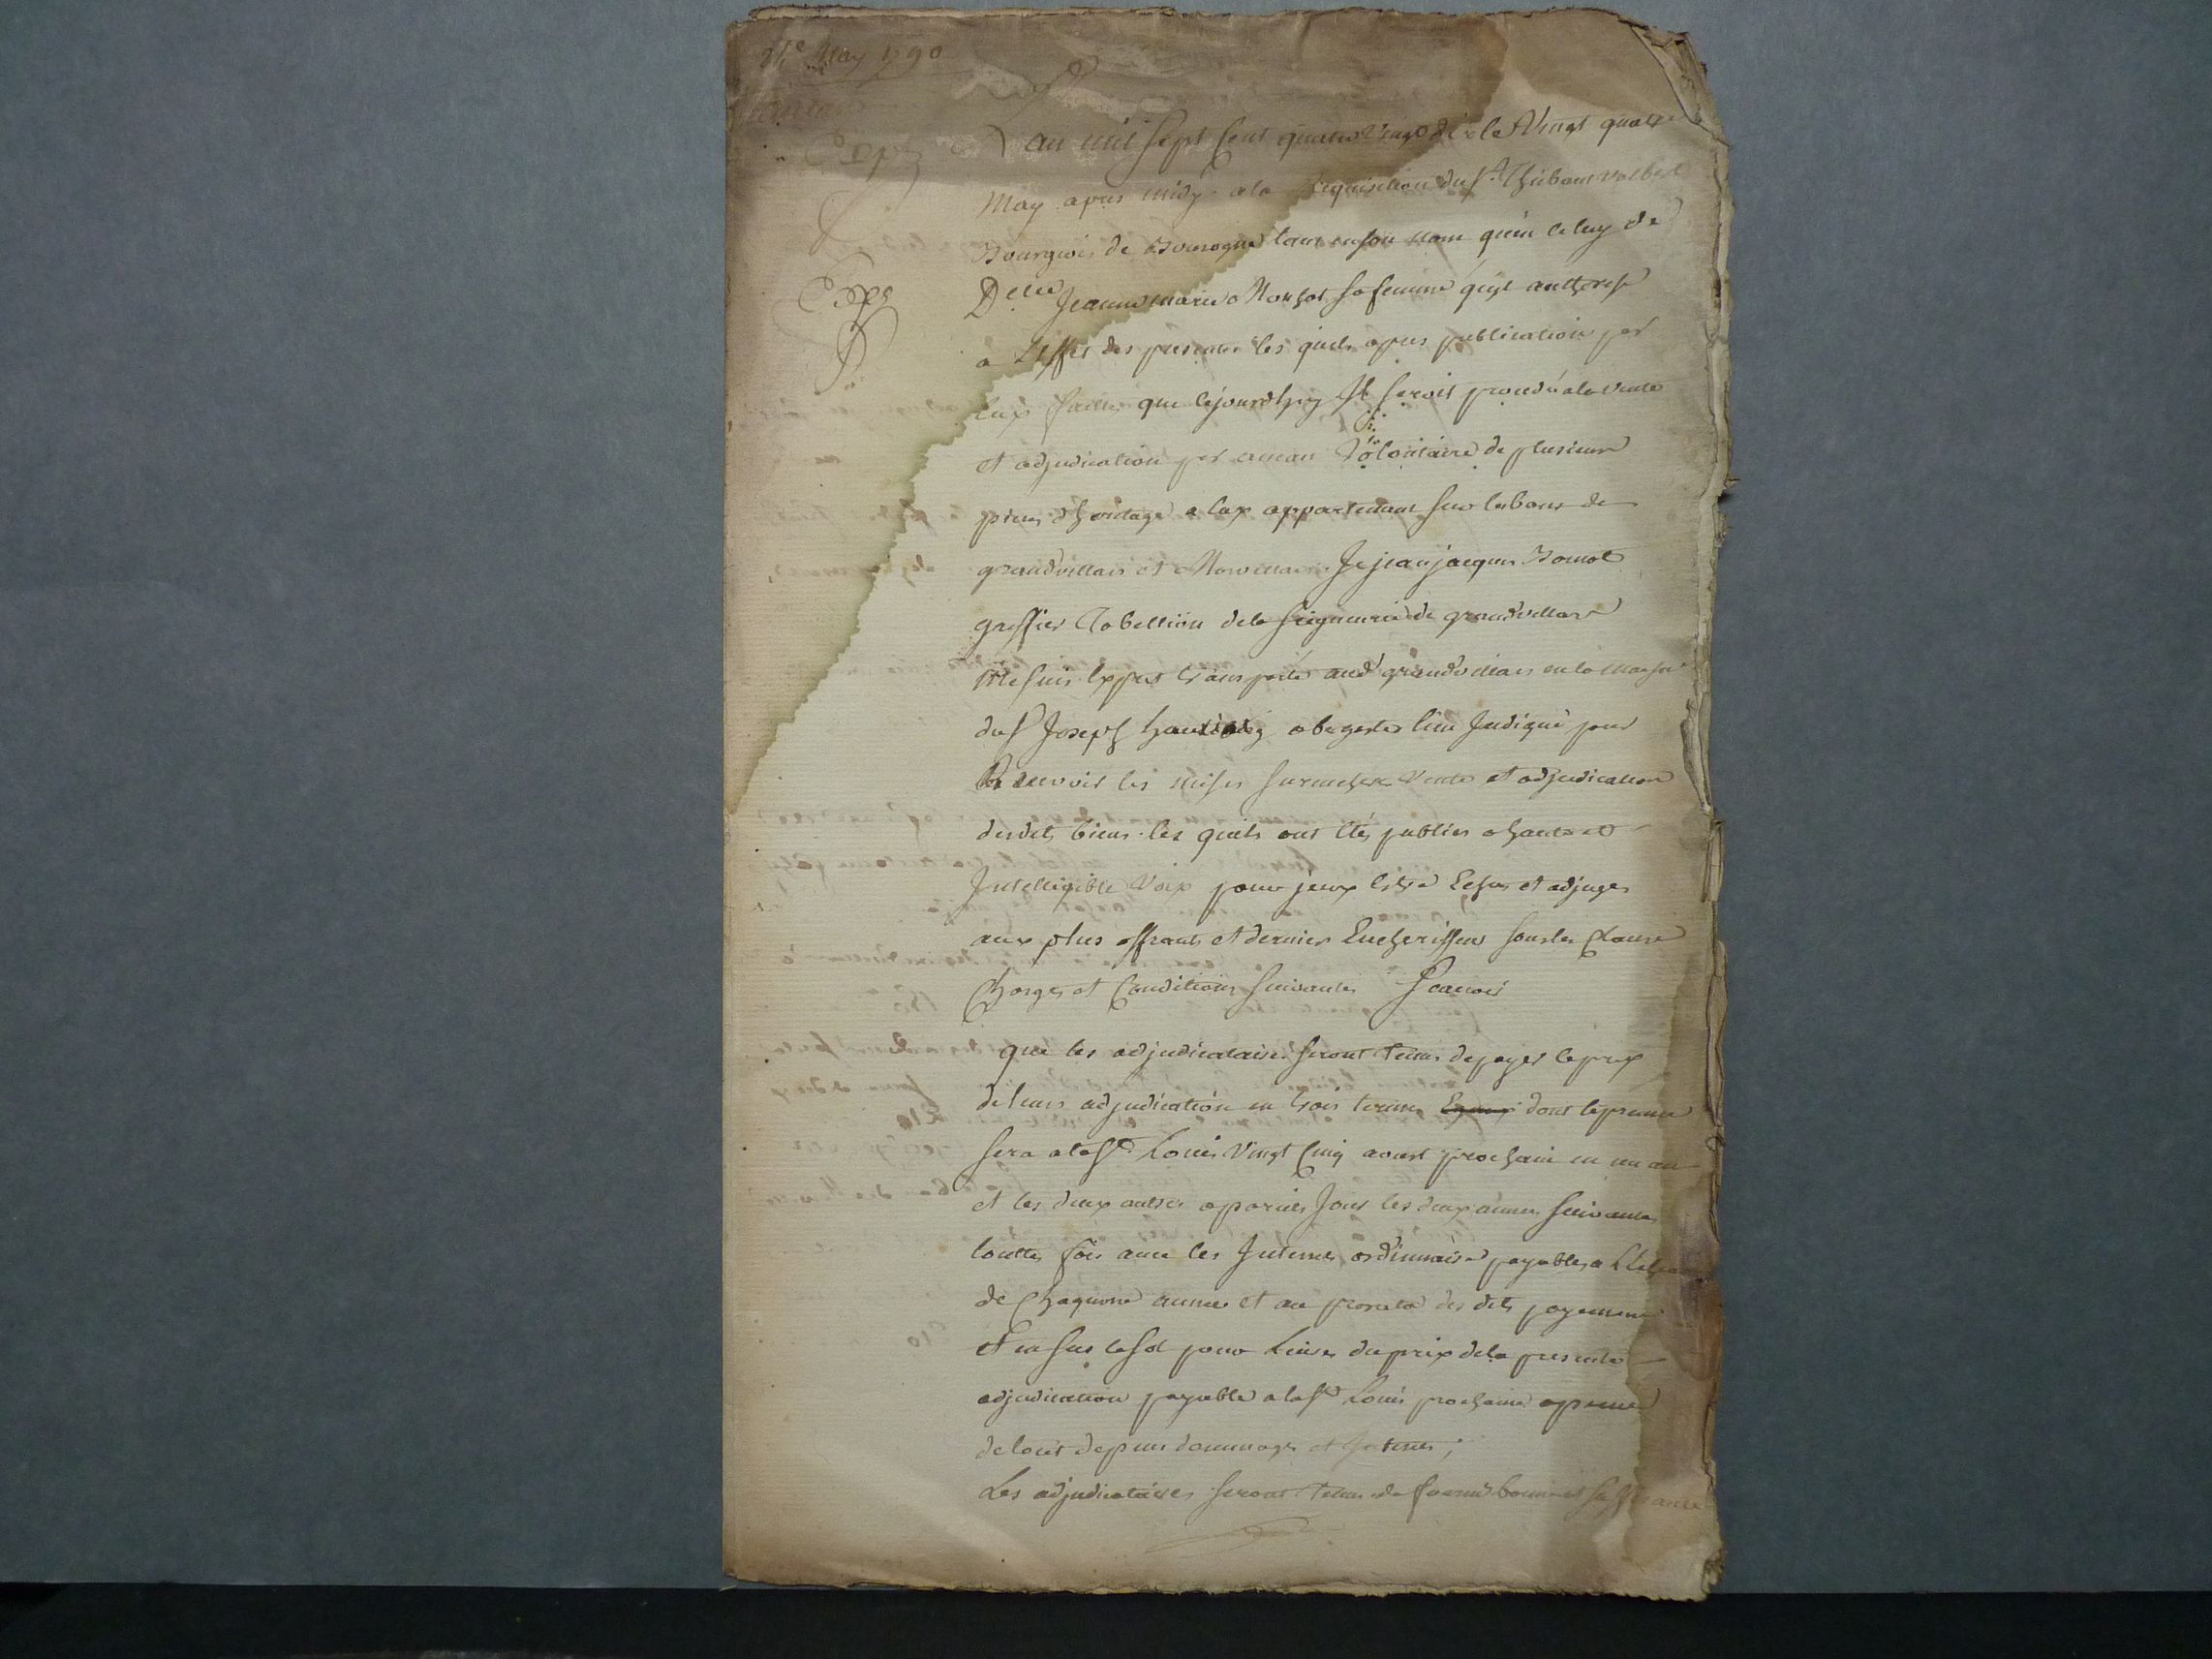 24e May 1790
Exp
L'an mil sept Cent quatre Vingt dix le Vingt quatre
May apres midy a la Requisition du Sr. Thiebaut
Bourgeois de Bourogne tant en son nom qu'en celuy de
Delle Jeanne marie Monsot sa femme qu'il authorise
a L'effet des presentes les quels apres publication par
Eux faittes que cejourdhuy Il seroit procedé a la Vente
et adjudication par Volontaire de plusieurs
pieces d'heritage a Eux appartenant sur les bans de
grandvillars et Morvillars Je jean jacques Bornot
greffier Tabellion de la seigneurie de grandvillars
Me suis Expres transporté aud. grandvillars en la maison
du S Joseph abergeste lieu Indiqué pour
Recevoir les mises surencheres Vente et adjudication
desdits biens les quels ont Etés publies a haute et
Intelligible Voix pour yeux Estre Echus et adjuges
aux plus offrants et dernier Encherisseur sous les Clause
Charges et Conditions suivantes Scavoir
que les adjudicataire seront tenus de payer le prix
de leurs adjudication en trois termes Egaux dont le premier
sera a la St Louis Vingt Cinq aoust prochain en un an
et les deux autres a pareil Jour les deux annees suivantes
touttes fois avec les Interres ordinnaire payables a L'Echeance
de Chaquune annee et au prorata des dits payements
Et en sus le sol pour Livre du prix de la presente
adjudication payable a la St Louis prochaine a peine
de tout depens dommages et Interres;
Les adjudicataires seront tenus de fournir bonne et suffisante